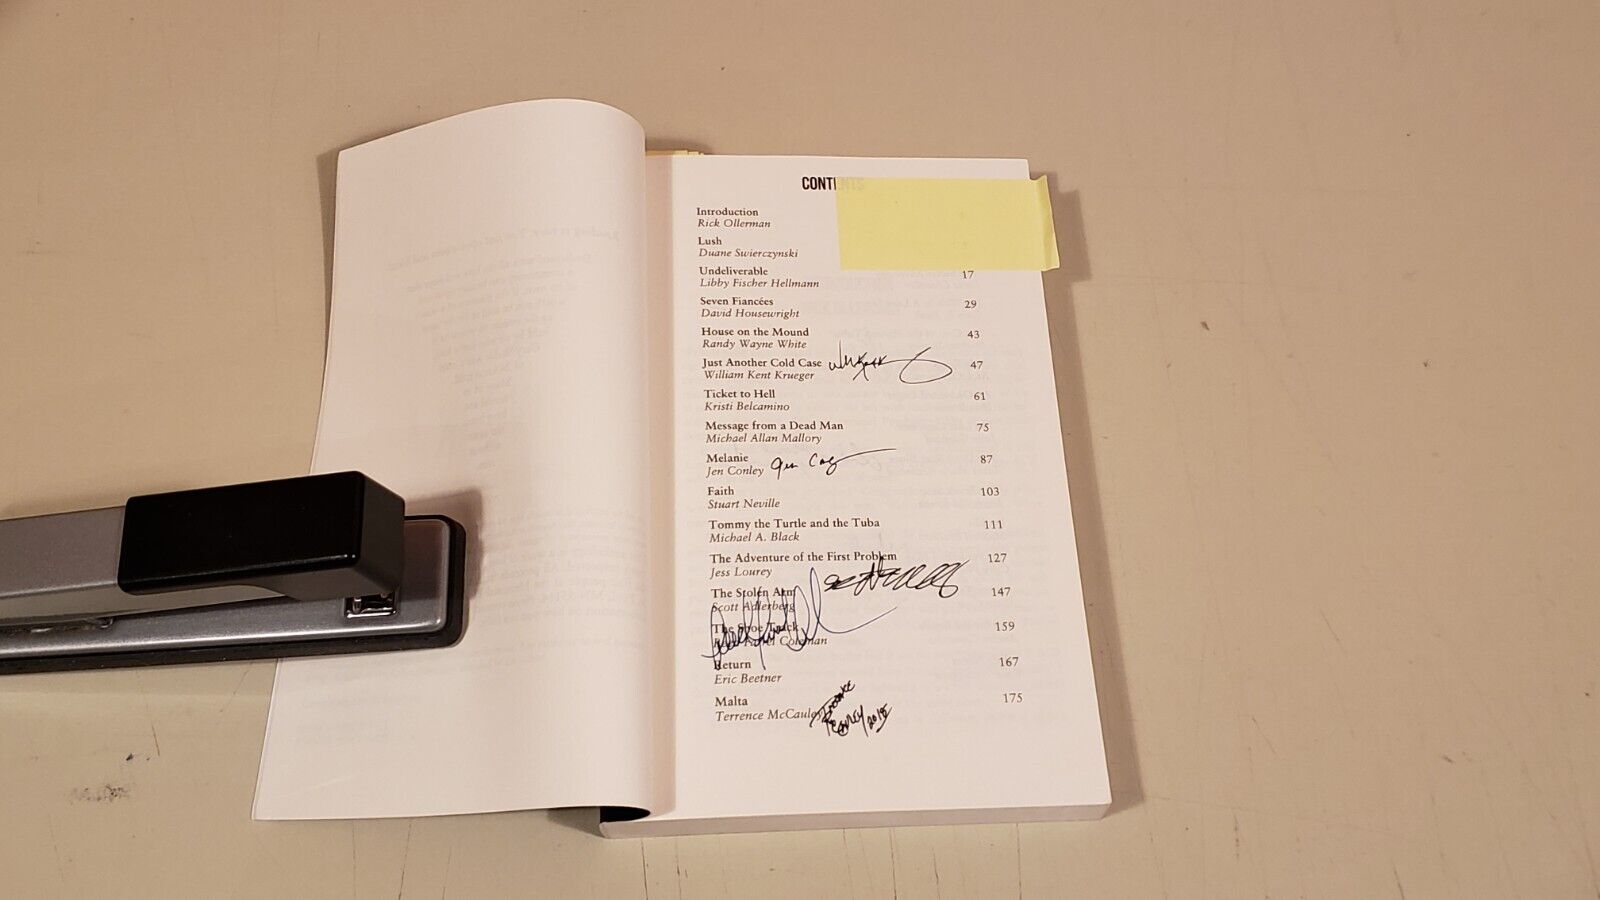 CONTENTS
Introduction
Rick Ollerman
Lush
Duane Swierczynski
Undeliverable 17
Libby Fischer Hellmann
Seven Fiancées 29
David Housewright
House on the Mound 43
Randy Wayne White
Just Another Cold Case 47
William Kent Krueger
Ticket to Hell 61
Kristi Belcamino
Message from a Dead Man 75
Michael Allan Mallory
Melanie 87
Jen Conley
Faith 103
Stuart Neville
Tommy the Turtle and the Tuba 111
Michael A. Black
The Adventure of the First Problem 127
Jess Lourey
The Stolen Arm 147
Scott Adlerberg
The Shoe Track 159
Coleman
Return 167
Eric Beetner
Malta 175
Terrence McCauley
2018